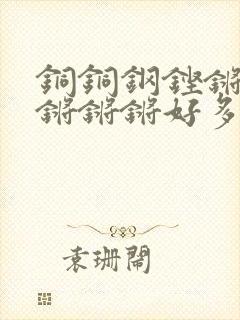 銅銅鋼鏗鏘
鏘鏘鏘好多
袁珊閙